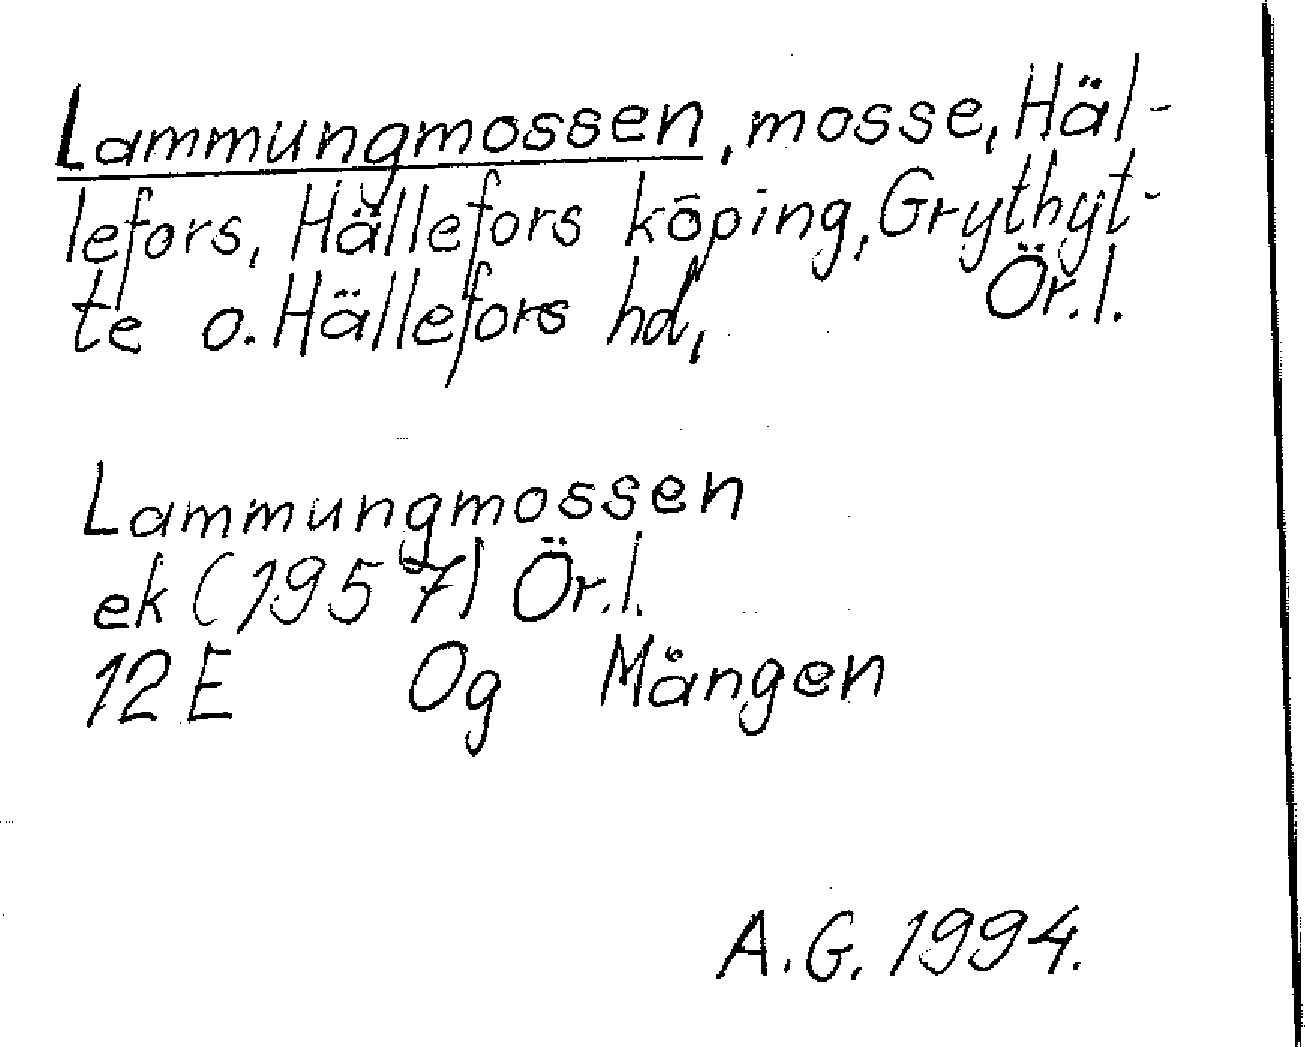 Lammungmossen, mosse, Häl-
lefors, Hällefors köping, Grythyt-
te o. Hällefors hd, Ör.l.
Lammungmossen
ek (1957) Ör.l.
12E Og Mången
A.G. 1994.